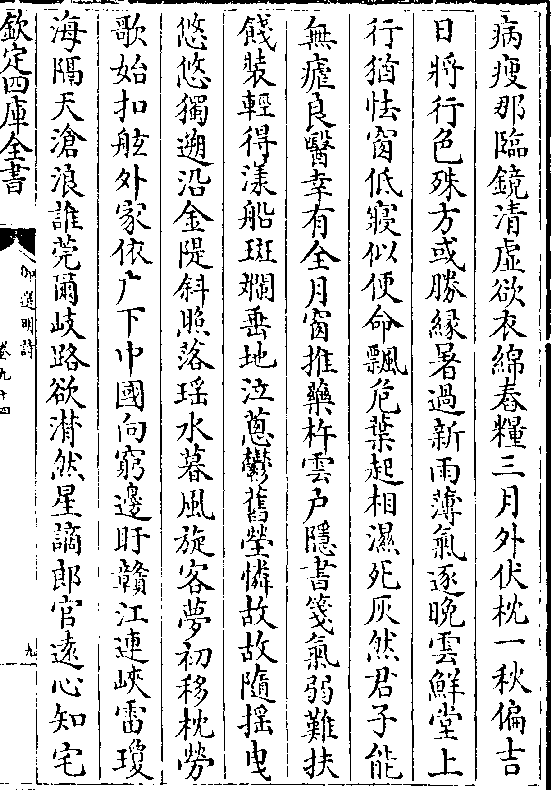 病瘦那臨鏡清虛欲衣綿舂糧三月外伏枕一秋偏吉
日將行色殊方或勝緣暑過新雨薄氣逐晚雲鮮堂上
行猶怯窗低寢似便命飄危葉起相濕死灰然君子能
無瘧良醫幸有全月窗推藥杵雲戶隱書箋氣弱難扶
餞裝輕得漾船斑斕垂地泣蔥鬱舊塋憐故故隨揺曳
悠悠獨遡沿金隄斜照落瑶水暮風旋客夢初移枕勞
歌始扣舷外家依广下中國向窮邊盱贛江連峽雷瓊
海隔天滄浪誰莞爾岐路欲潸然星謫郎官逺心知宅
欽定四庫全書
御選明詩
卷九十四
九